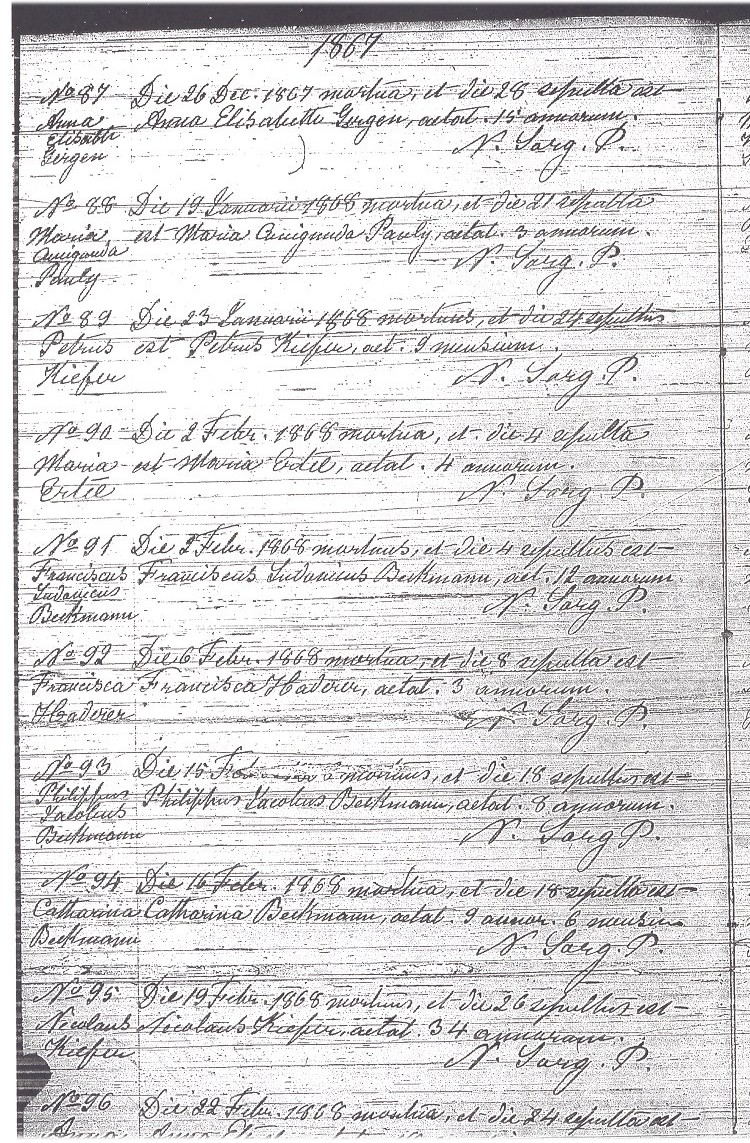 1867
No 87 Die 26 Dec. 1867 mortua, et die 28 sepulta est
Anna Anna Elisabetta Gergen, aetat. 15 annorum.
Elisabtt N. Sorg. P.
Gergen
No 88 Die 19 Januarii 1868 mortua, et die 21 sepulta
Maria est Maria Cunigunda Pauly, aetat. 3 annorum.
Cunigunda N. Sorg. P.
Pauly
No 89 Die 23 Januarii 1868 mortuus, et die 24 sepultus
Petrus est Petrus Kiefer, aet. 9 mensium.
Kiefer N. Sorg. P.
No 90 Die 2 Febr. 1868 mortua, et die 4 sepulta
Maria est Maria Ertel, aetat. 4 annorum.
Ertel N. Sorg P.
No 91 Die 2 Febr. 1868 mortuus, et die 4 sepultus est
Franciscus Franciscus Ludovicus Beckmann, aet. 12 annorum
Ludovicus N. Sorg P.
Beckmann
No 92 Die 6 Febr. 1868 mortua, et die 8 sepulta est
Francisca Francisca Haderer, aetat. 3 annorum.
Haderer N. Sorg. P.
No 93 Die 15 mortuus, et die 18 sepultus est
Philippus Philippus Jacobus Beckmann, aetat. 8 annorum.
Jacobus N. Sorg P.
Beckmann
No 94 Die 16 Febr. 1868 mortua, et die 18 sepulta est
Catharina Catharina Beckmann, aetat. 9 annor. 6 mensiu
Beckmann N. Sorg. P.
No 95 Die 19 Febr. 1868 mortuus, et die 26 sepultus est
Nicolaus Nicolaus Kiefer, aetat. 34 annorum.
Kiefer N. Sorg. P.
No 96 Die 22 Febr. 1868 mortua, et die 24 sepulta est